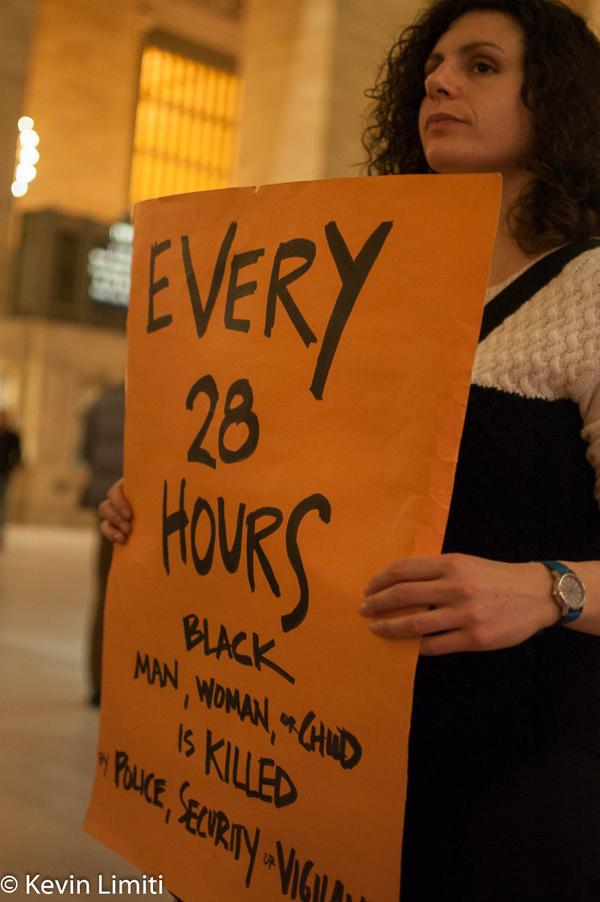 EVERY
28
HOURS
BLACK
MAN, WOMAN, OR CHILD
IS KILLED
BY POLICE, SECURITY OR
© Kevin Limiti